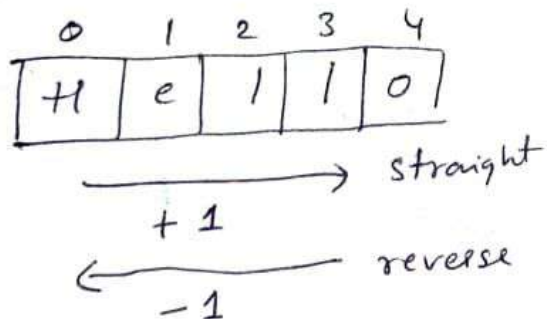 0 1 2 3 4
H e l l o
straight
+ 1
reverse
- 1